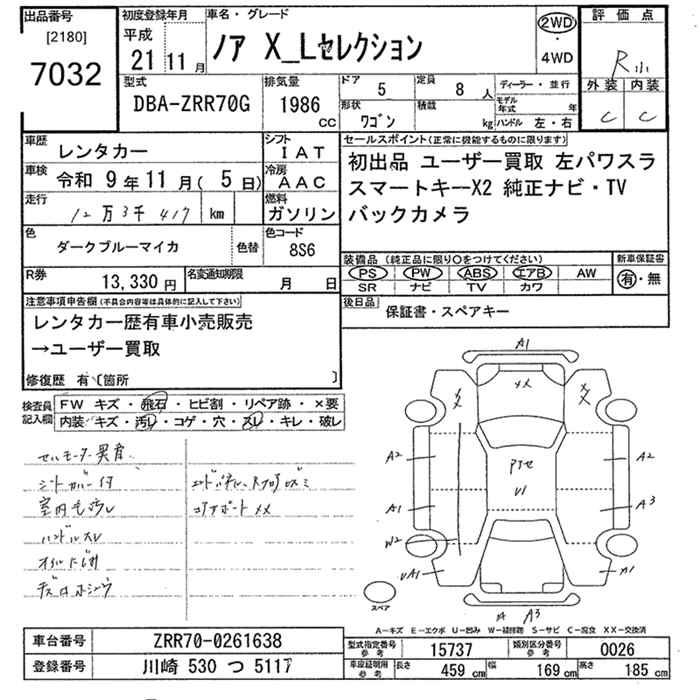 出品番号
[2180]
7032
初度登録年月
平成
21年11月
車名・グレード
ノア X_Lセレクション
2WD
・
4WD
評価点
R小
外装 内装
C C
型式
DBA-ZRR70G
排気量
1986 CC
ドア
5
形状
ワゴン
定員
8 人
積載
kg
ディーラー・並行
モデル年式 年
ハンドル 左・右
車歴
レンタカー
シフト
IAT
車検
令和 9年11月(5日)
冷房
AAC
走行
12万3千417 km
燃料
ガソリン
色
ダークブルーマイカ
色替
色コード
8S6
R券
13,330円
名変通知期限
月 日
セールスポイント(正常に機能するものに限ります)
初出品 ユーザー買取 左パワスラ
スマートキーX2 純正ナビ・TV
バックカメラ
装備品(純正品に限り○をつけてください)
PS PW ABS エアB AW
SR ナビ TV カワ
新車保証書
有・無
後日品
保証書・スペアキー
注意事項申告欄(不具合内容等は具体的に記入して下さい)
レンタカー歴有車小売販売
→ユーザー買取
修復歴 有〔箇所 〕
検査員記入欄
FW キズ・飛石・ヒビ割・リペア跡・×要
内装 キズ・汚レ・コゲ・穴・スレ・キレ・破レ
セルモーター異音
シートカバー付
室内毛汚レ
ハンドルスレ
コアサポートメメ
A1
メメ
XX
XX
A2
A2
アタセ
U1
A1
A3
W2
UA1
A1
A3
スペア
A-キズ E-エクボ U-凹み W-補修跡 S-サビ C-腐食 XX-交換済
車台番号
ZRR70-0261638
登録番号
川崎 530 つ 5117
型式指定番号 参考
15737
類別区分番号 参考
0026
車庫証明用 参考
長さ 459 cm 幅 169 cm 高さ 185 cm